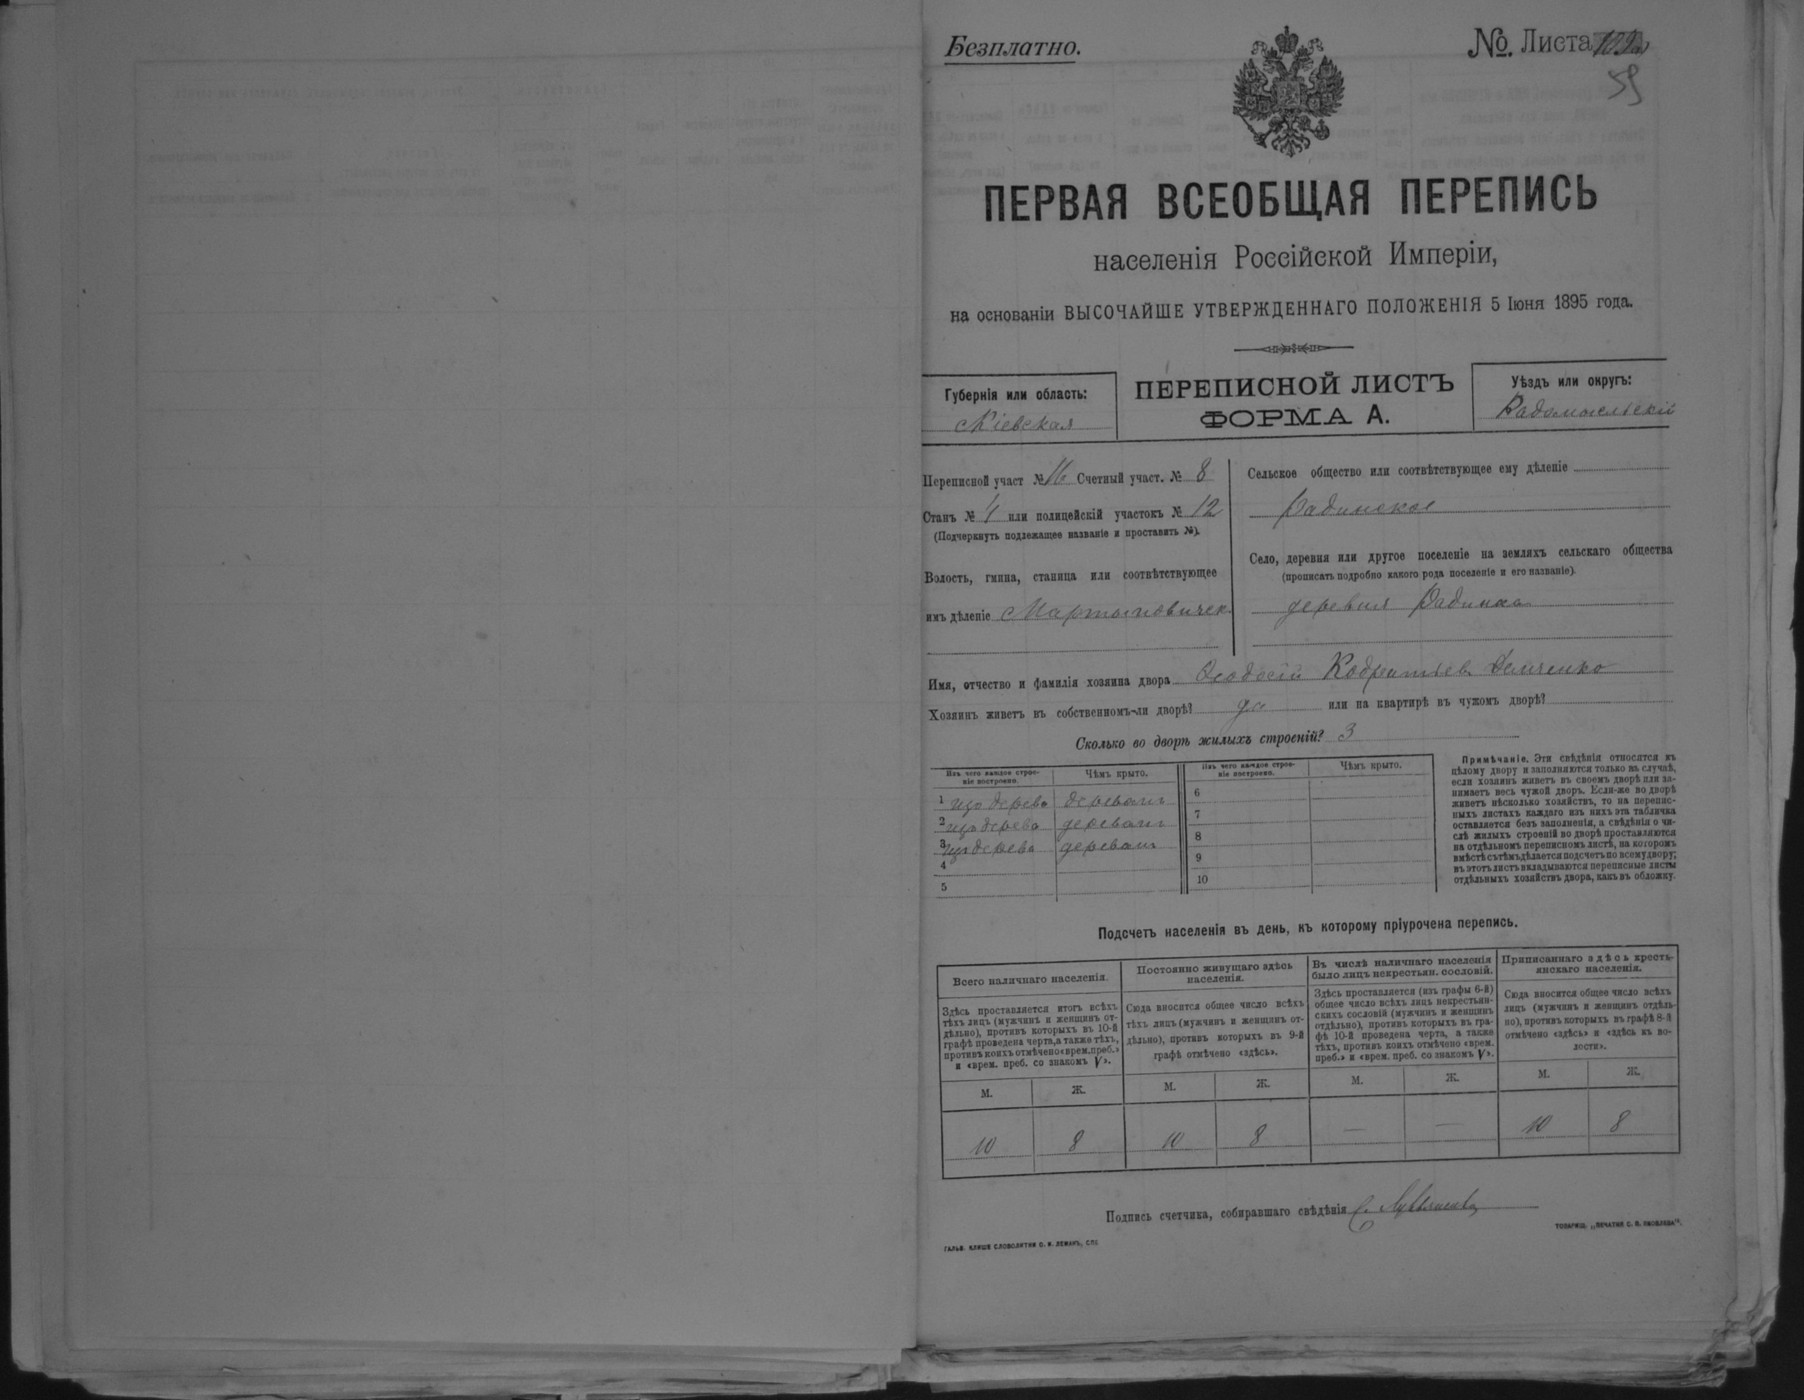 Безплатно.
№. Листа
59
ПЕРВАЯ ВСЕОБЩАЯ ПЕРЕПИСЬ
населенія Россійской Имперіи,
на основаніи ВЫСОЧАЙШЕ УТВЕРЖДЕННАГО ПОЛОЖЕНІЯ 5 Іюня 1895 года.
Губернія или область:
Кіевская
ПЕРЕПИСНОЙ ЛИСТЪ
ФОРМА А.
Уѣздъ или округъ:
Радомысльскій
Переписной участ № 16 Счетный участ. № 8
Станъ № 4 или полицейскій участокъ № 12
(Подчеркнуть подлежащее названіе и проставить №).
Волость, гмина, станица или соотвѣтствующее
имъ дѣленіе Мартыновичск.
Сельское общество или соотвѣтствующее ему дѣленіе
Радинское
Село, деревня или другое поселеніе на земляхъ сельскаго общества
(прописать подробно какого рода поселеніе и его названіе).
деревня Радинка
Имя, отчество и фамилія хозяина двора Ѳеодосій Кодратьев Демченко
Хозяинъ живетъ въ собственномъ-ли дворѣ? да или на квартирѣ въ чужомъ дворѣ?
Сколько во дворѣ жилыхъ строеній? 3
Изъ чего каждое строеніе построено.
Чѣмъ крыто.
Изъ чего каждое строеніе построено.
Чѣмъ крыто.
1 изъ дерева
2 изъ дерева
3 изъ дерева
4
5
6
7
8
9
10
Примѣчаніе. Эти свѣдѣнія относятся къ
цѣлому двору и заполняются только въ случаѣ,
если хозяинъ живетъ въ своемъ дворѣ или за-
нимаетъ весь чужой дворъ. Если-же во дворѣ
живетъ нѣсколько хозяйствъ, то на перепис-
ныхъ листахъ каждаго изъ нихъ эта табличка
оставляется безъ заполненія, а свѣдѣнія о чи-
слѣ жилыхъ строеній во дворѣ проставляются
на отдѣльномъ переписномъ листѣ, на которомъ
вмѣстѣ съ тѣмъ дѣлается подсчетъ по всему двору;
въ этотъ листъ вкладываются переписные листы
отдѣльныхъ хозяйствъ двора, какъ въ обложку.
Подсчетъ населенія въ день, къ которому пріурочена перепись.
Всего наличнаго населенія.
Здѣсь проставляется итогъ всѣхъ
тѣхъ лицъ (мужчинъ и женщинъ от-
дѣльно), противъ которыхъ въ 10-й
графѣ проведена черта, а также тѣхъ,
противъ коихъ отмѣчено «врем. преб.»
и «врем. преб. со знакомъ V».
М. Ж.
10 8
Постоянно живущаго здѣсь
населенія.
Сюда вносится общее число всѣхъ
тѣхъ лицъ (мужчинъ и женщинъ от-
дѣльно), противъ которыхъ въ 9-й
графѣ отмѣчено «здѣсь».
М. Ж.
10 8
Въ числѣ наличнаго населенія
было лицъ некрестьян. сословій.
Здѣсь проставляется (изъ графы 6-й)
общее число всѣхъ лицъ некрестьян-
скихъ сословій (мужчинъ и женщинъ
отдѣльно), противъ которыхъ въ гра-
фѣ 10-й проведена черта, а также
тѣхъ, противъ коихъ отмѣчено «врем.
преб.» и «врем. преб. со знакомъ V».
М. Ж.
— —
Приписаннаго здѣсь кресть-
янскаго населенія.
Сюда вносится общее число всѣхъ
лицъ (мужчинъ и женщинъ отдѣль-
но), противъ которыхъ въ графѣ 8-й
отмѣчено «здѣсь» и «здѣсь къ во-
лости».
М. Ж.
10 8
Подпись счетчика, собиравшаго свѣдѣнія
ГАЛЬВ. КЛИШЕ СЛОВОЛИТНИ О. И. ЛЕМАНЪ, СПБ
ТОВАРИЩ. „ПЕЧАТНЯ С. П. ЯКОВЛЕВА".